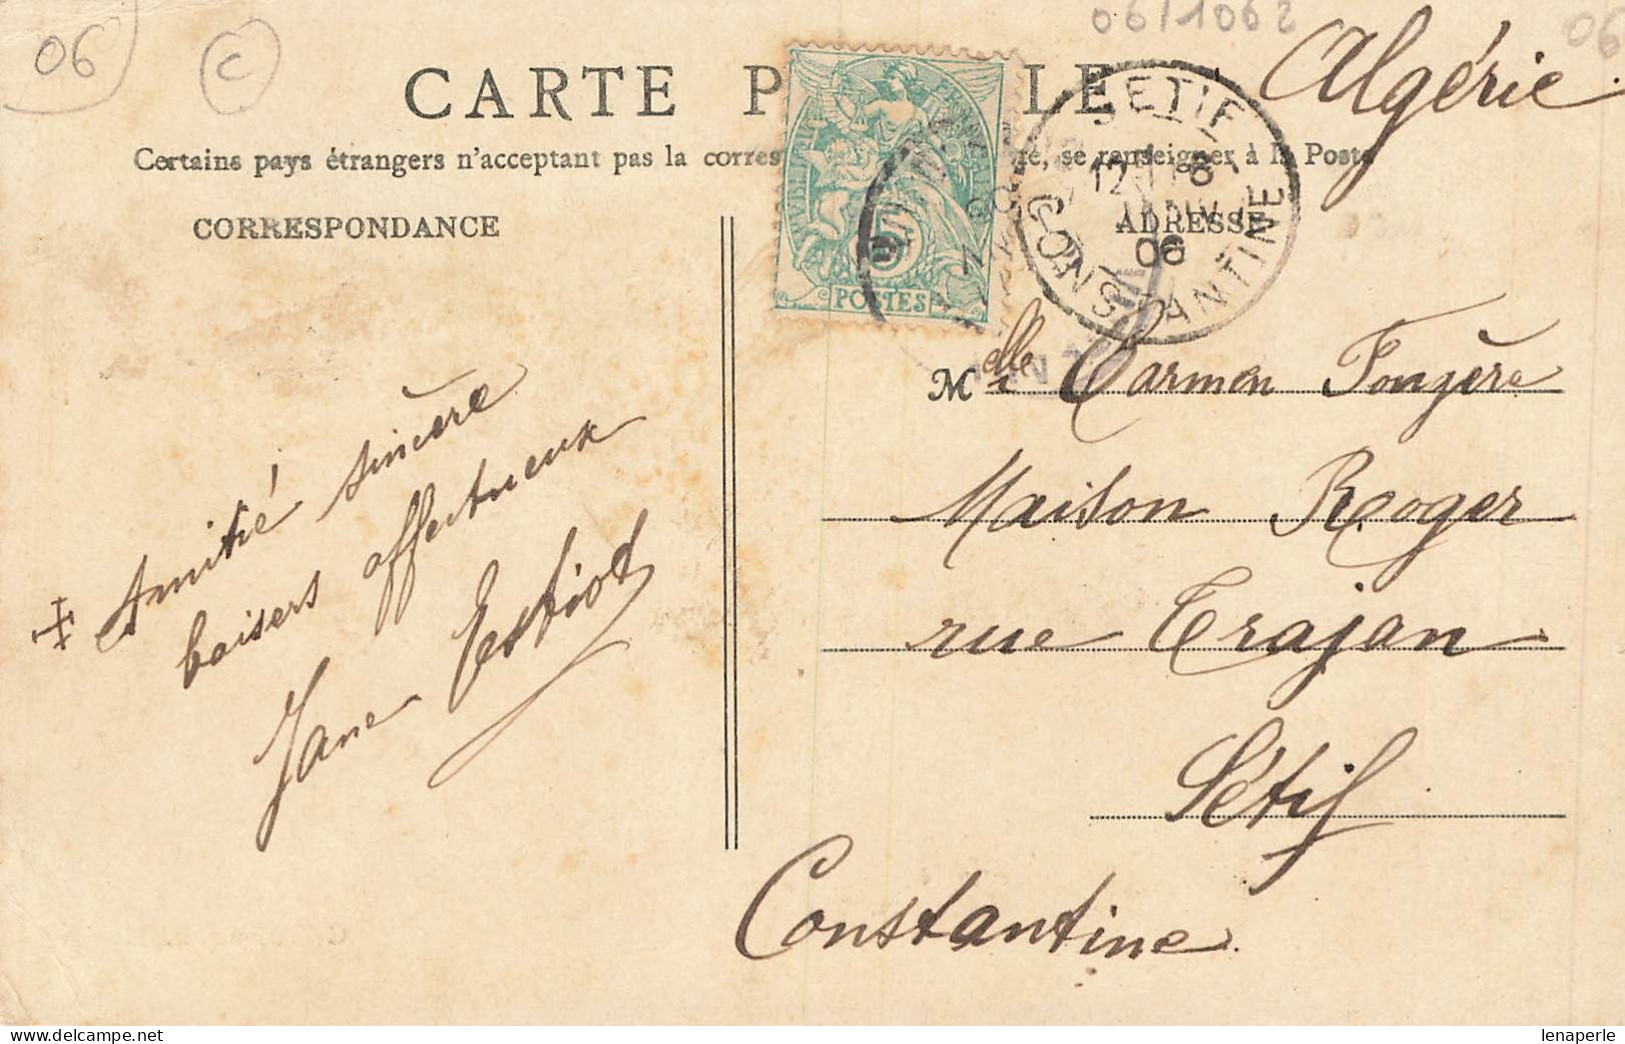 06
C
06/1062
06
Algérie
CARTE P LE
Certains pays étrangers n'acceptant pas la corres re, se renseigner à la Poste
POSTES
5
SETIF
12
8
06
CONSTANTINE
CORRESPONDANCE
ADRESSE
Amitié sincère
baisers affectueux
Jane Estiot
Melle Carmen Fougère
Maison Rooger
rue Trajan
Sétif
Constantine
lenaperle